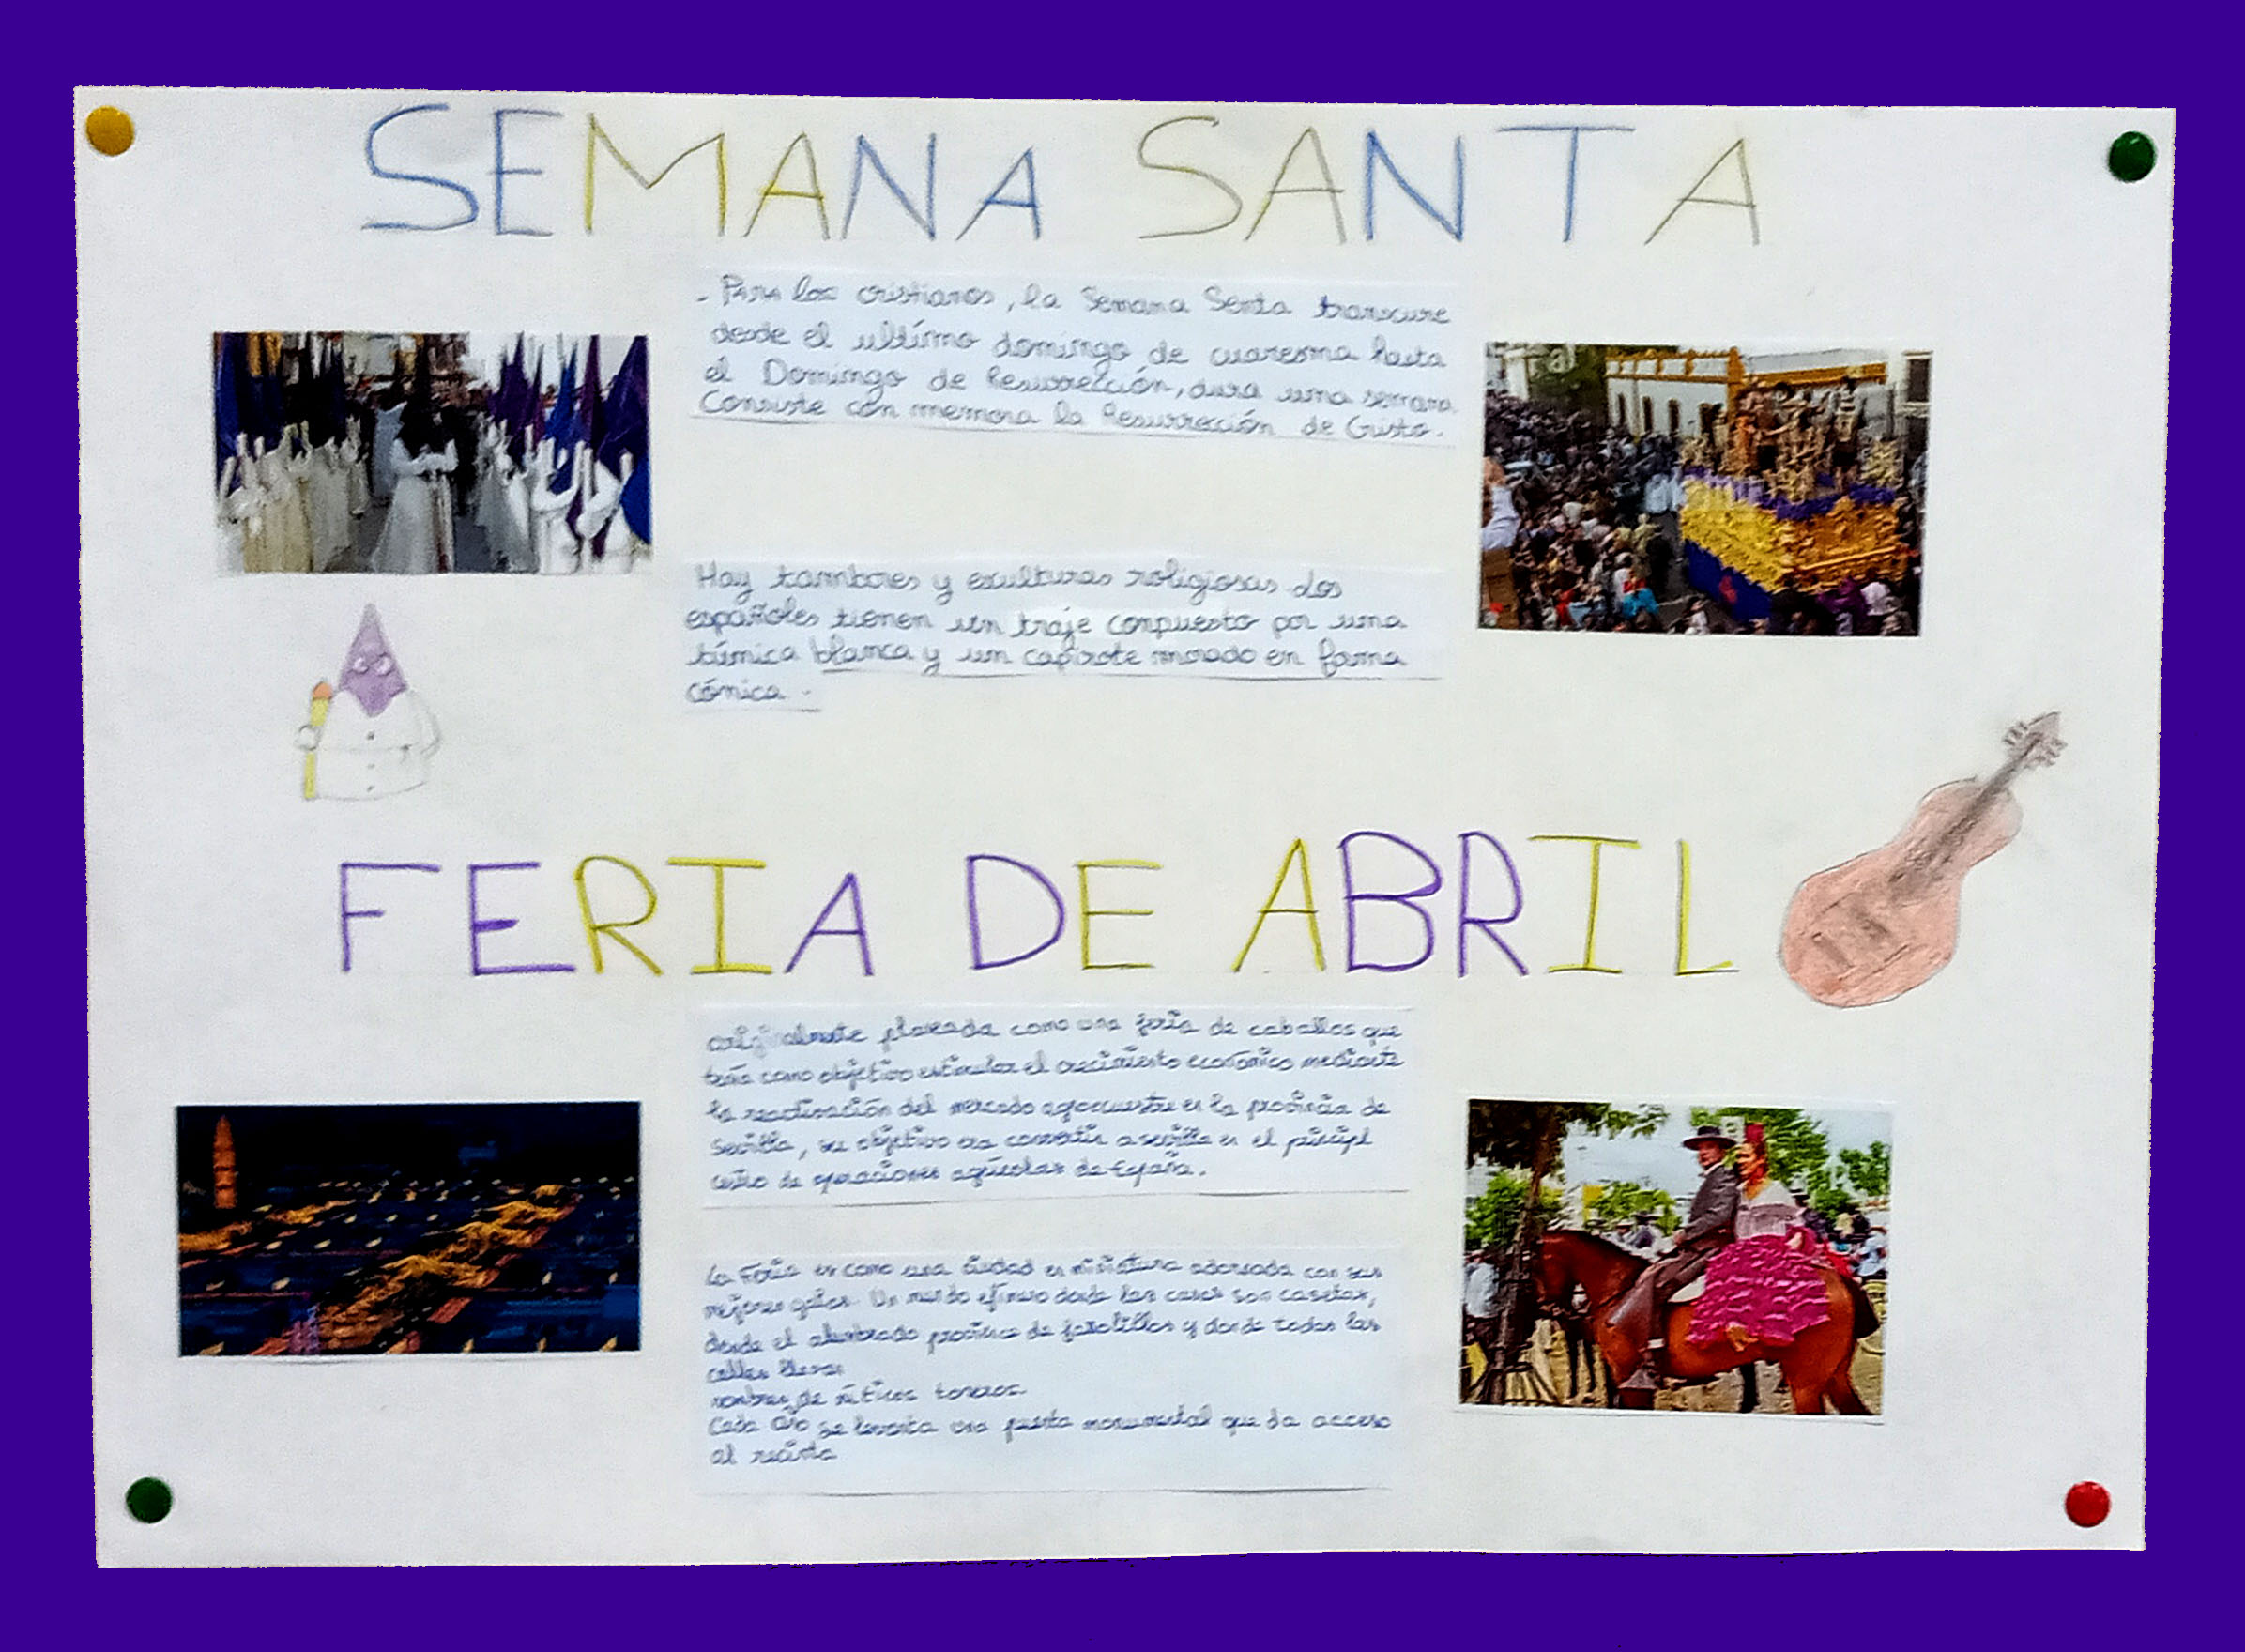 SEMANA SANTA
- PARA los cristianos, la Semana Santa transcure
desde el ultimo domingo de cuaresma hasta
el Domingo de Resurrección, dura una semana.
Consiste con memora la Resurrección de Cristo.
Hay tambores y esculturas religiosas los
españoles tienen un traje conpuesto por una
túnica blanca y un capirote morado en forma
cónica.
FERIA DE ABRIL
originalmente planeada como una feria de caballos que
tenía como objetivo estimular el crecimiento económico mediante
la reactivación del mercado agrocuestre en la provincia de
Sevilla, su objetivo era convertir a sevilla en el
centro de operaciones agrícolas de España.
La Feria es como una ciudad en miniatura adornada con sus
mejores galas. Un mundo efímero donde las casas son casetas,
donde el alumbrado proviene de farolillos y donde todas las
calles llevan
nombres de míticos toreros.
Cada año se levanta una puerta monumental que da acceso
al recinto